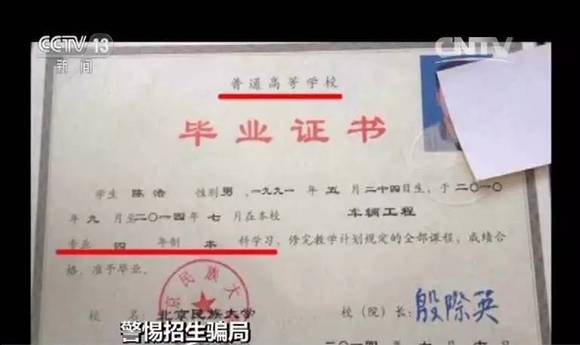 CCTV 13
新闻
CNTV
普通高等学校
毕业证书
学生 陈浩 性别 男,一九九一年 五 月 二十四日生,于二〇一〇
年 九 月至二〇一四年 七 月在本校 车辆工程
专业 四 年制 本 科学习,修完教学计划规定的全部课程,成绩合
格,准予毕业。
京民族大
校 名: 北京民族大学 校(院)长: 殷际英
警惕招生骗局